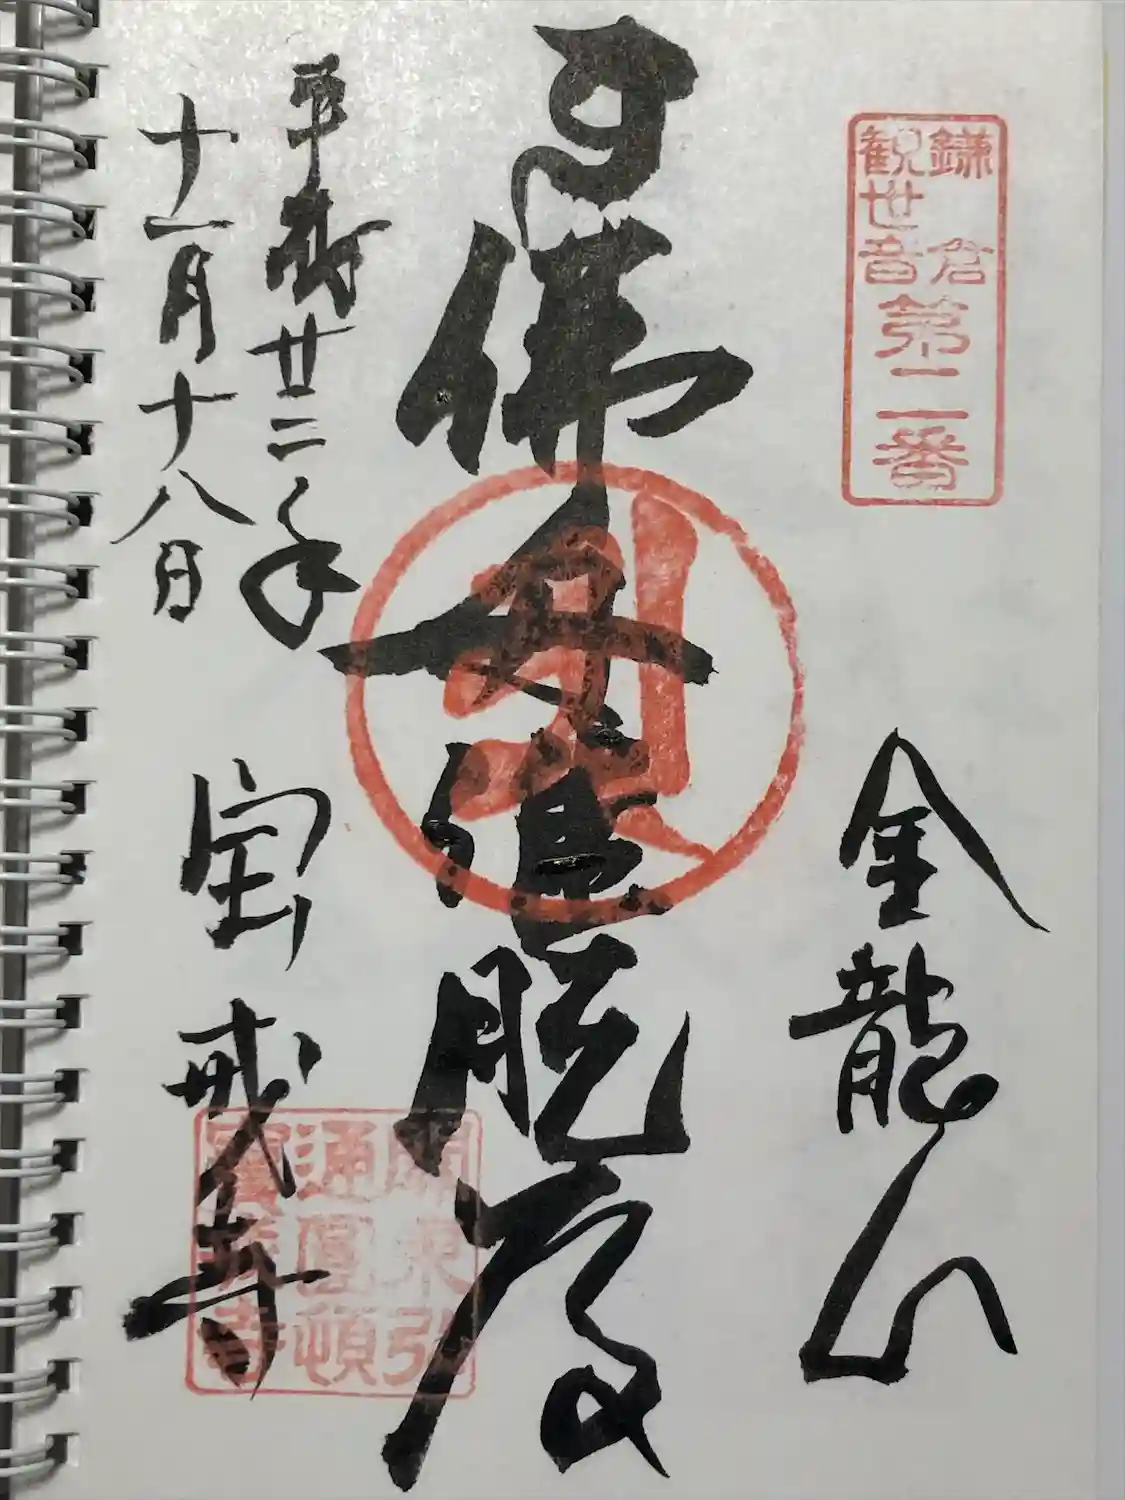 鎌倉
観世音
第二番
金龍山
佛母
平成廿二年
十一月十八日
宝戒寺
關東弘
通圓頓
寶戒寺